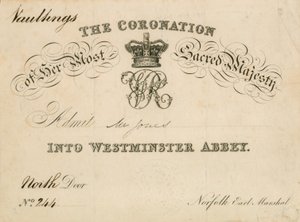 Vaultings
THE CORONATION
of Her Most Sacred Majesty
VR
Admit Mr Jones
INTO WESTMINSTER ABBEY.
North Door
No. 244.
Norfolk Earl Marshal.